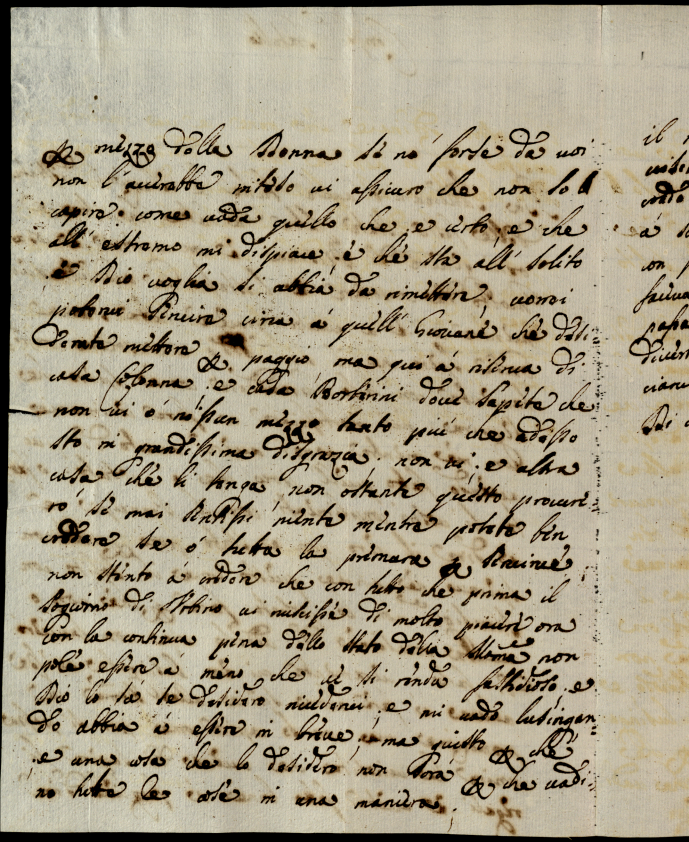 mezzo della Donna se nò forse da voi
non l'averebbe inteso vi assicuro che non so
capire come vada quello che e certo e che
all' estremo mi dispiace è che sta all' solito
e Dio voglia si abbia da rimettere, vorrei
potervi servire circa á quell' Giovane che desi=
derate mettere paggio ma qui á riserva di
casa Colonna e casa Barberini dove sapete che
non vi ó nissun mezzo tanto piú che adesso
sto in grandissima disgrazia. non vi e altra
casa che li tenga, non ostante questo procure=
ró se mai sentissi niente mentre potete ben
credere se ó tutta la premura servirvi
non stento á credere che con tutto che prima il
sogiorno di Urbino vi riuscisse di molto piacere ora
con la continua pena dello stato della non
pole essere a meno che vi si renda fastidioso e
Dio lo sá se desidero rivedervi e mi vado lusingan=
do abbia á essere in breve, ma questo che
e una cosa che la desidero non sorá che vadi=
no tutte le cose in una maniera,
il
á
con